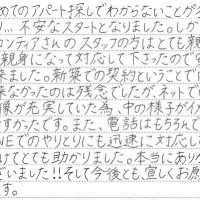 めてのアパート探しでわからないことが多
、不安なスタートとなりました。しか
コンディアさんのスタッフの方はとても親
親身になって対応して下さったので安
来ました。新築での契約ということで内
来なかったのは残念でしたが、ネットで画
像が充実していた為、中の様子がイメ
すかったです。また、電話はもちろんで
INEでのやりとりにも迅速に対応し
けてとても助かりました。本当にありが
ざいました!!そして今後とも、宜しくお願
す。